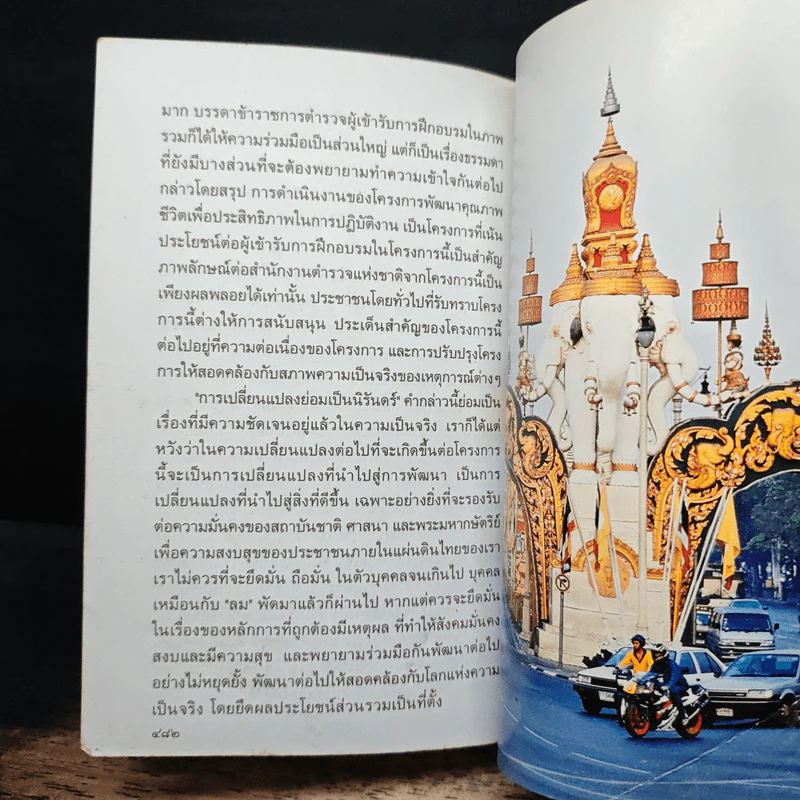 มาก บรรดาข้าราชการตำรวจผู้เข้ารับการฝึกอบรมในภาพ
รวมก็ได้ให้ความร่วมมือเป็นส่วนใหญ่ แต่ก็เป็นเรื่องธรรมดา
ที่ยังมีบางส่วนที่จะต้องพยายามทำความเข้าใจกันต่อไป
กล่าวโดยสรุป การดำเนินงานของโครงการพัฒนาคุณภาพ
ชีวิตเพื่อประสิทธิภาพในการปฏิบัติงาน เป็นโครงการที่เน้น
ประโยชน์ต่อผู้เข้ารับการฝึกอบรมในโครงการนี้เป็นสำคัญ
ภาพลักษณ์ต่อสำนักงานตำรวจแห่งชาติจากโครงการนี้เป็น
เพียงผลพลอยได้เท่านั้น ประชาชนโดยทั่วไปที่รับทราบโครง
การนี้ต่างให้การสนับสนุน ประเด็นสำคัญของโครงการนี้
ต่อไปอยู่ที่ความต่อเนื่องของโครงการ และการปรับปรุงโครง
การให้สอดคล้องกับสภาพความเป็นจริงของเหตุการณ์ต่างๆ
"การเปลี่ยนแปลงย่อมเป็นนิรันดร์" คำกล่าวนี้ย่อมเป็น
เรื่องที่มีความชัดเจนอยู่แล้วในความเป็นจริง เราก็ได้แต่
หวังว่าในความเปลี่ยนแปลงต่อไปที่จะเกิดขึ้นต่อโครงการ
นี้จะเป็นการเปลี่ยนแปลงที่นำไปสู่การพัฒนา เป็นการ
เปลี่ยนแปลงที่นำไปสู่สิ่งที่ดีขึ้น เฉพาะอย่างยิ่งที่จะรองรับ
ต่อความมั่นคงของสถาบันชาติ ศาสนา และพระมหากษัตริย์
เพื่อความสงบสุขของประชาชนภายในแผ่นดินไทยของเรา
เราไม่ควรที่จะยึดมั่น ถือมั่น ในตัวบุคคลจนเกินไป บุคคล
เหมือนกับ "ลม" พัดมาแล้วก็ผ่านไป หากแต่ควรจะยึดมั่น
ในเรื่องของหลักการที่ถูกต้องมีเหตุผล ที่ทำให้สังคมมั่นคง
สงบและมีความสุข และพยายามร่วมมือกันพัฒนาต่อไป
อย่างไม่หยุดยั้ง พัฒนาต่อไปให้สอดคล้องกับโลกแห่งความ
เป็นจริง โดยยึดผลประโยชน์ส่วนรวมเป็นที่ตั้ง
๔๘๒